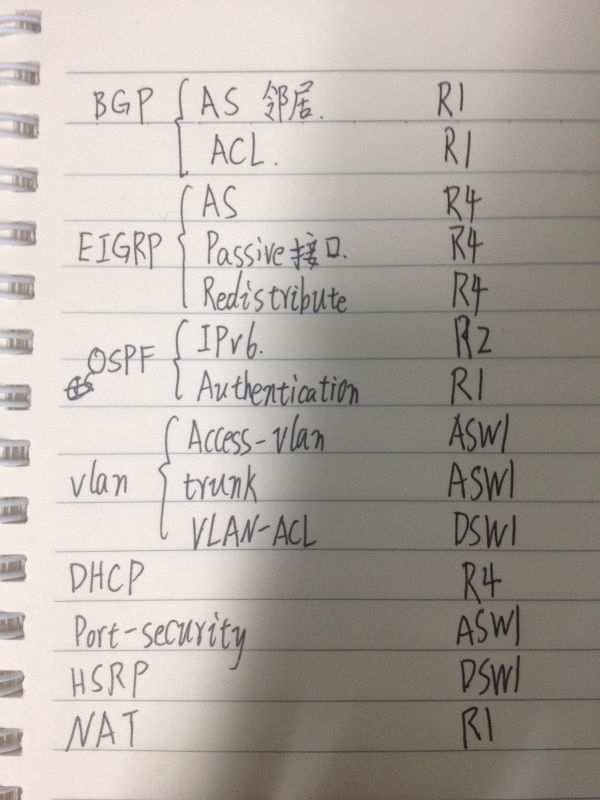 BGP AS 邻居. R1
ACL. R1
AS R4
EIGRP Passive 接口. R4
Redistribute R4
IPv6. R2
OSPF
Authentication R1
Access-vlan ASW1
vlan trunk ASW1
VLAN-ACL DSW1
DHCP R4
Port-security ASW1
HSRP DSW1
NAT R1